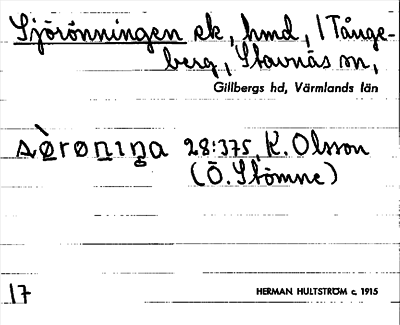 Sjörönningen ek, hmd, / Tånge-
berg, Stavnäs sn,
Gillbergs hd, Värmlands län
28:375. K. Olsson
(Ö. Stömne)
17
HERMAN HULTSTRÖM c. 1915